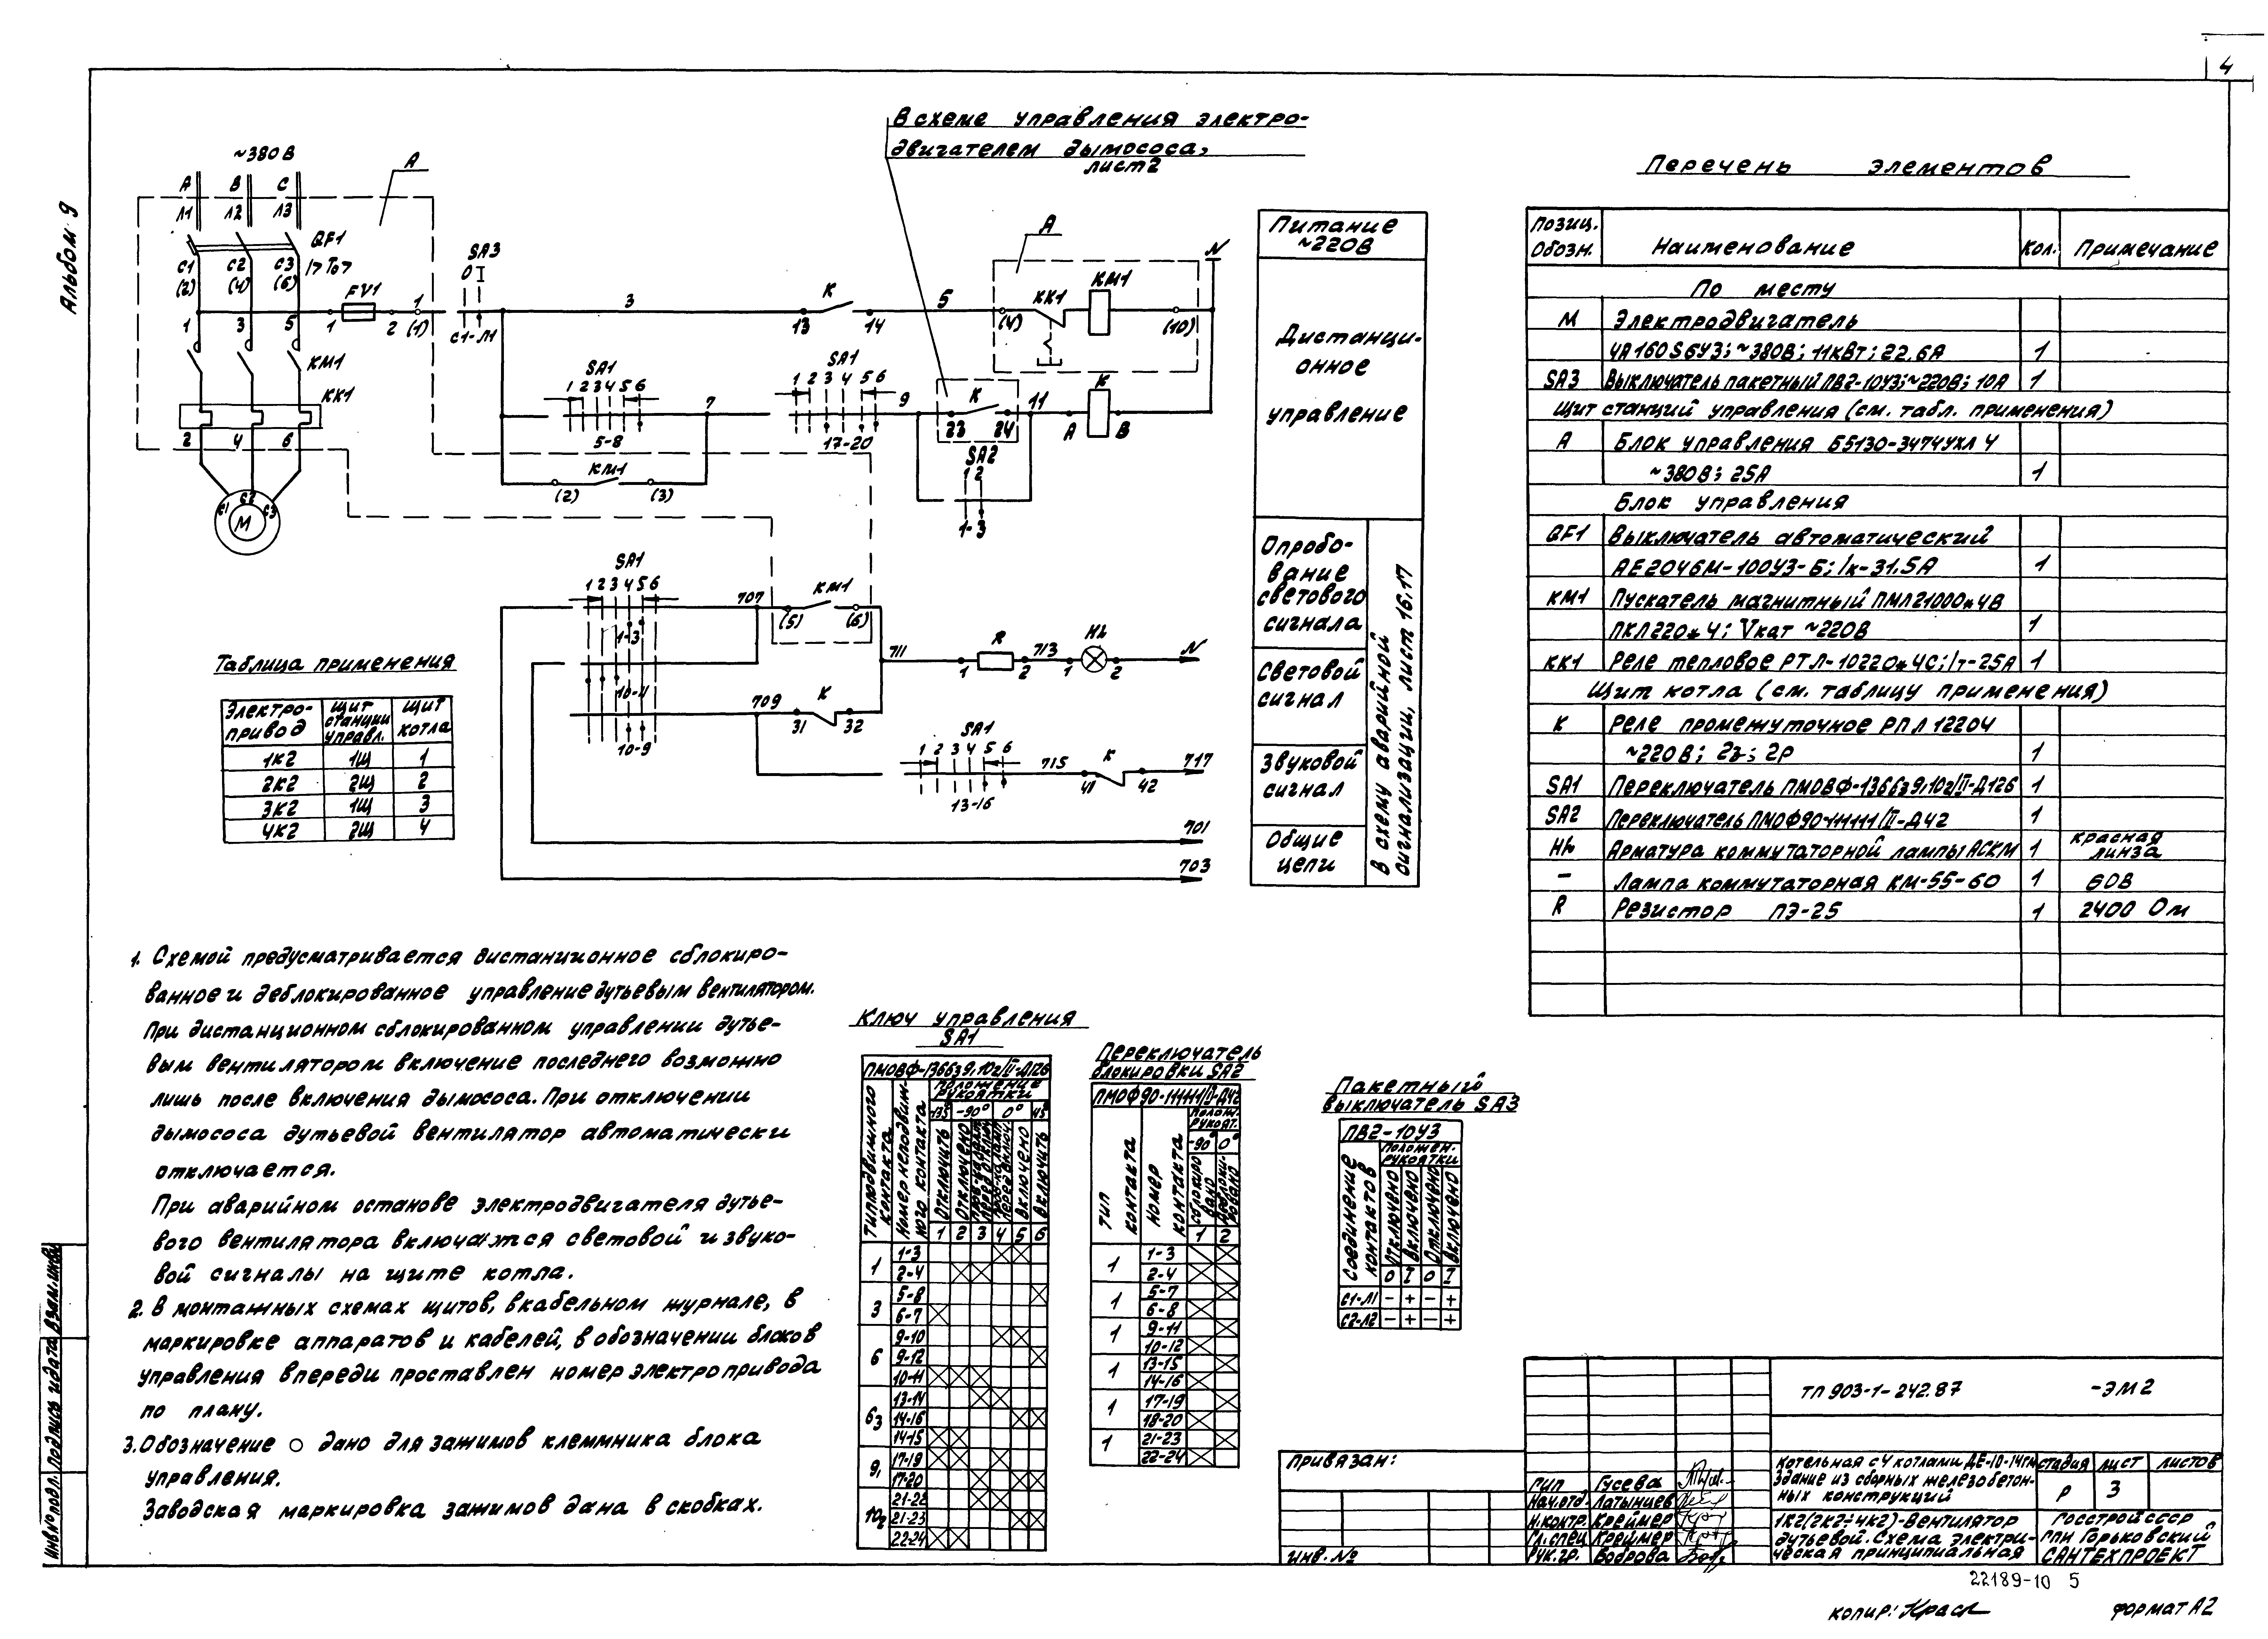 4
Альбом 9
~380В
А В С
Л1 Л2 Л3
А
QF1
С1 С2 С3
(2) (4) (6)
FV1
1 2 (1)
1
SA3
0 I
С1-Л1
1 3 5
КМ1
КК1
2 4 6
С1 С2 С3
М
В схеме управления электро-
двигателем дымососа,
лист 2
3
К
13 14
5
А
(4)
КК1
КМ1
(10)
N
SA1
1 2 3 4 5 6
5-8
7
SA1
1 2 3 4 5 6
17-20
9
К
23 24
11
К
А В
КМ1
(2) (3)
SA2
1 2
1-3
SA1
1 2 3 4 5 6
1-3
10-11
10-9
707
КМ1
(5) (6)
711
R
1 2
713
HL
1 2
N
709
К
31 32
SA1
1 2 3 4 5 6
13-16
715
К
41 42
717
701
703
Питание
~220В
Дистанци-
онное
управление
Опробо-
вание
светового
сигнала
Световой
сигнал
Звуковой
сигнал
Общие
цепи
В схему аварийной
сигнализации, лист 16,17
Таблица применения
Электро-
привод
щит
станции
управл.
щит
котла
1К2 1Щ 1
2К2 2Щ 2
3К2 1Щ 3
4К2 2Щ 4
Перечень элементов
Позиц.
Обозн. Наименование Кол. Примечание
По месту
М Электродвигатель
4А160S6У3; ~380В; 11кВт; 22.6А 1
SA3 Выключатель пакетный ПВ2-10У3; ~220В; 10А 1
Щит станций управления (см. табл. применения)
А Блок управления Б5130-3474УХЛ4
~380В; 25А 1
Блок управления
QF1 Выключатель автоматический
АЕ2046М-100У3-Б; Iк-31.5А 1
КМ1 Пускатель магнитный ПМЛ21000*4В
ПКЛ220*4; Vкат ~220В 1
КК1 Реле тепловое РТЛ-10220*4С; Iт-25А 1
Щит котла (см. таблицу применения)
К Реле промежуточное РПЛ12204
~220В; 2з; 2р 1
SA1 Переключатель ПМОВФ-136639,102/II-Д126 1
SA2 Переключатель ПМОФ90-111111/II-Д42 1
HL Арматура коммутаторной лампы АСКМ 1 красная линза
- Лампа коммутаторная КМ-55-60 1 60В
R Резистор ПЭ-25 1 2400 Ом
1. Схемой предусматривается дистанционное сблокиро-
ванное и деблокированное управление дутьевым вентилятором.
При дистанционном сблокированном управлении дутье-
вым вентилятором включение последнего возможно
лишь после включения дымососа. При отключении
дымососа дутьевой вентилятор автоматически
отключается.
При аварийном останове электродвигателя дутье-
вого вентилятора включаются световой и звуко-
вой сигналы на щите котла.
2. В монтажных схемах щитов, в кабельном журнале, в
маркировке аппаратов и кабелей, в обозначении блоков
управления впереди проставлен номер электропривода
по плану.
3. Обозначение ○ дано для зажимов клеммника блока
управления.
Заводская маркировка зажимов дана в скобках.
Ключ управления
SA1
ПМОВФ-136639.102/II-Д126
Тип подвижного
контакта
Номер неподвиж-
ного контакта
положение
рукоятки
135° -90° 0° 45°
Отключить
Отключено
Включено
Включить
1 2 3 4 5 6
1 1-3
2-4
3 5-8
6-7
6 9-10
9-12
10-11
63 13-14
14-16
14-15
91 17-19
17-20
102 21-22
21-23
22-24
Переключатель
блокировки SA2
ПМОФ90-111111/II-Д42
Тип
контакта
Номер
контакта
Полож.
рукоят.
-90° 0°
сблокиро
вано
деблоки-
ровано
1 2
1 1-3
2-4
1 5-7
6-8
1 9-11
10-12
1 13-15
14-16
1 17-19
18-20
1 21-23
22-24
Пакетный
выключатель SA3
ПВ2-10У3
Соединение
контактов
Положен.
рукоятки
Отключено
Включено
Отключено
Включено
0 I 0 I
С1-Л1 - + - +
С2-Л2 - + - +
Привязан:
Инв. №
ТП 903-1-242.87 -ЭМ2
ГИП Гусева
Нач.отд. Латынцев
Н.контр. Креймер
Гл.спец Креймер
Рук.гр. Боброва
Котельная с 4 котлами ДЕ-10-14ГМ
Здание из сборных железобетон-
ных конструкций
стадия лист листов
Р 3
1К2(2К2÷4К2)-Вентилятор
дутьевой. Схема электри-
ческая принципиальная
Госстрой СССР
ГПИ Горьковский
САНТЕХПРОЕКТ
22189-10 5
копир:
формат А2
Инв № подл. Подпись и дата Взам. инв №